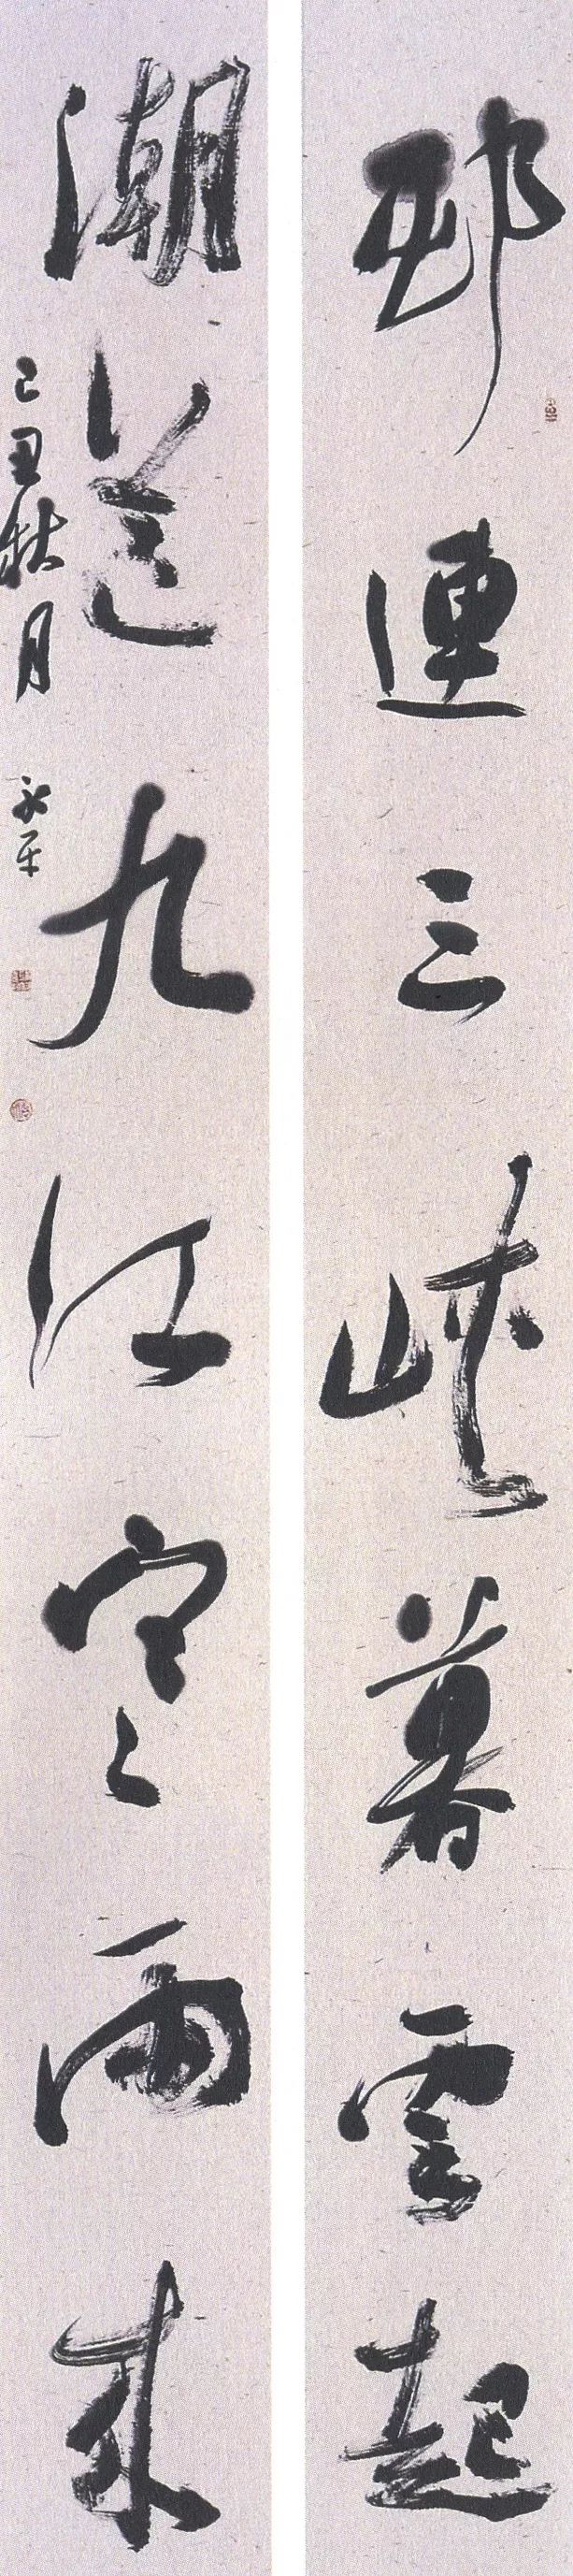 邨連三峽暮雲起
潮送九江寒雨來
己丑秋月 永平